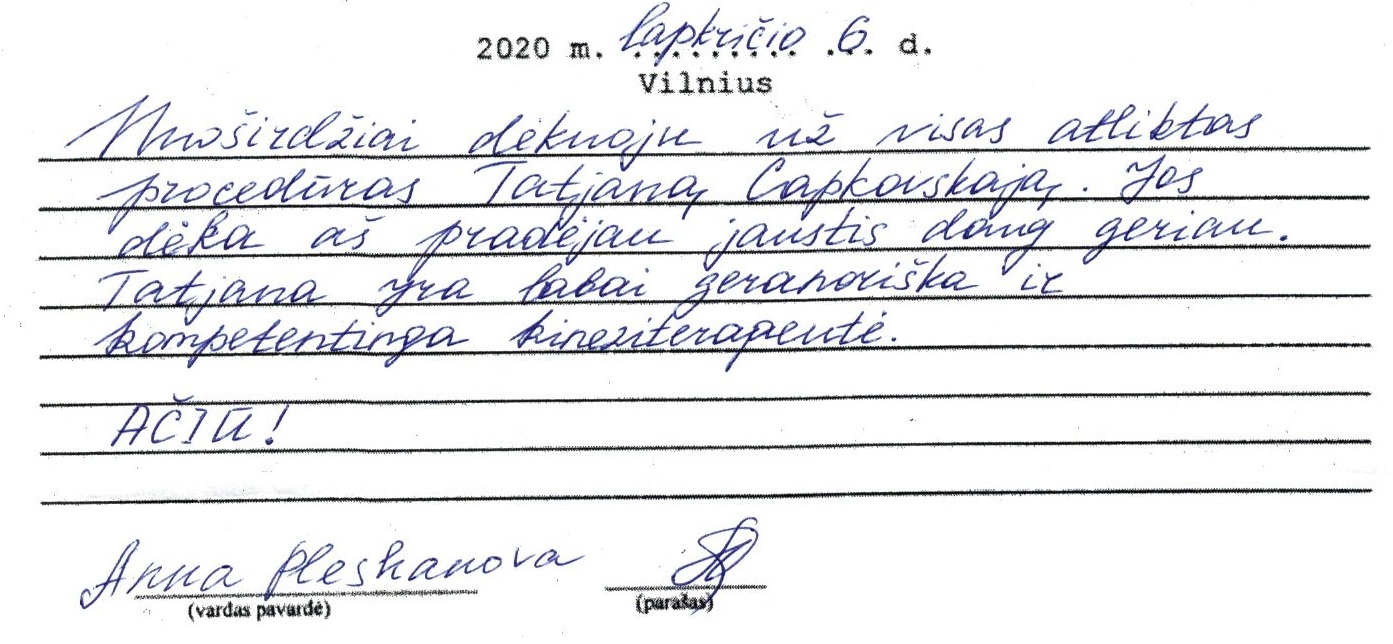 2020 m. lapkričio 6. d.
Vilnius
Nuoširdžiai dėkuoju už visas atliktas
procedūras Tatjaną Capkovskają. Jos
dėka aš pradėjau jaustis daug geriau.
Tatjana yra labai geranoriška ir
kompetentinga kineziterapeutė.
AČIŪ!
Anna Pleskanova
(vardas pavardė) (parašas)